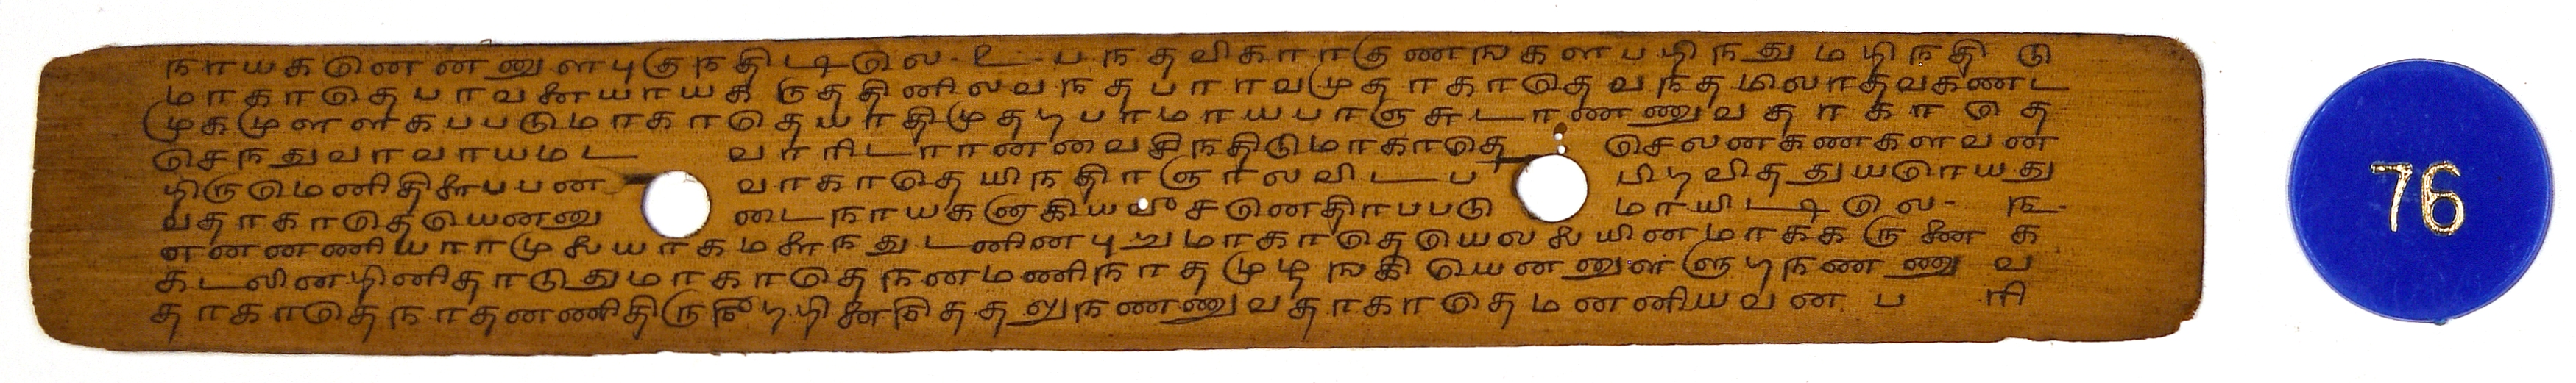 நாயகனெனனுளபுகுநதிடிலெ-உ-பநதவிகாரகுணஙகளபறிநதுமறிநதிடு
மாகாதெபாவனையாயகருததினிலவநதபராவமுதாகாதெவநதமிலாதவகணட
முமுளளகபபடுமாகாதெயாதிமுதறபரமாயபரஞசுடரணணுவதாகாதெ
செநதுவரவாயமட வாரிடரானவைசிநதிடுமாகாதெ செலனகணகளவன
றிருமெனிதிளைபபன வாகாதெயிநதிரஞாலவிடப பிறவிததுயரொயது
வதாகாதெயெனனு டைநாயகனகியவீசனெதிரபபடு மாயிடிலெ-௩-
எனனணியாரமுலையாகமளைநதுடனினபுறுமாகாதெயெலலையினமாககருணைக
கடலினறினிதாடுதுமாகாதெநனமணிநாதமுழஙகியெனனுளளுறநணணுவ
தாகாதெநாதனணிதிருநீறறினைநிததலுநணணுவதாகாதெமனனியவனபரி